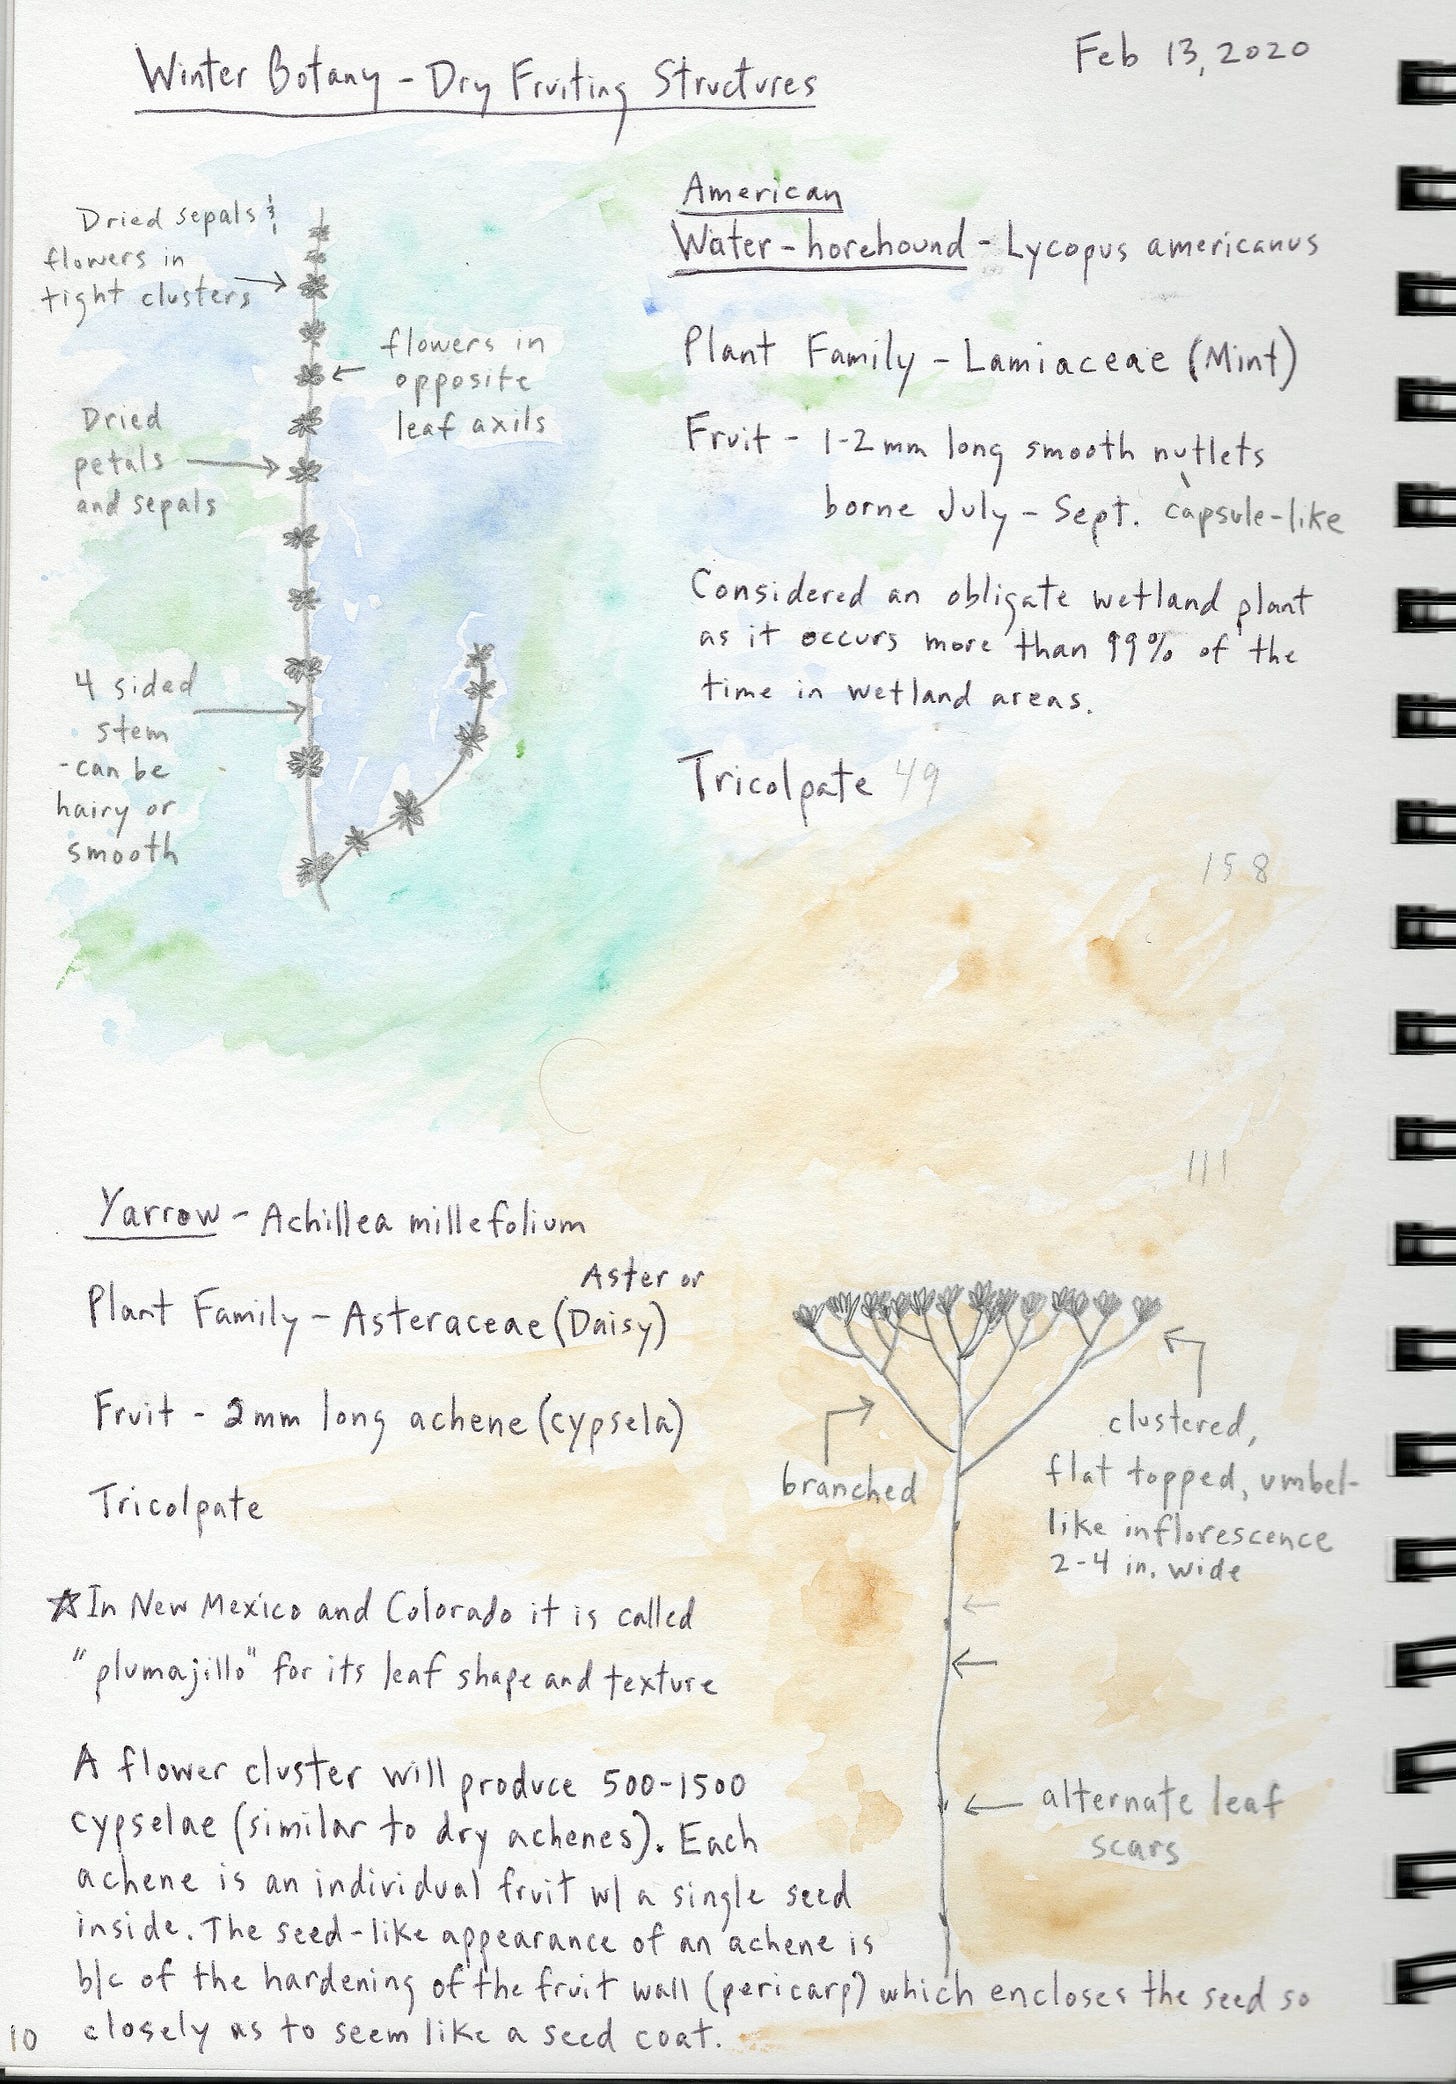 Winter Botany - Dry Fruiting Structures
Feb 13, 2020
Dried sepals &
flowers in
tight clusters
flowers in
opposite
leaf axils
Dried
petals
and sepals
4 sided
stem
-can be
hairy or
smooth
American
Water-horehound - Lycopus americanus
Plant Family - Lamiaceae (Mint)
Fruit - 1-2mm long smooth nutlets
borne July - Sept. capsule-like
Considered an obligate wetland plant
as it occurs more than 99% of the
time in wetland areas.
Tricolpate 49
158
111
Yarrow - Achillea millefolium
Aster or
Plant Family - Asteraceae (Daisy)
Fruit - 2mm long achene (cypsela)
Tricolpate
☆In New Mexico and Colorado it is called
"plumajillo" for its leaf shape and texture
branched
clustered,
flat topped, umbel-
like inflorescence
2-4 in. wide
alternate leaf
scars
A flower cluster will produce 500-1500
cypselae (similar to dry achenes). Each
achene is an individual fruit w/ a single seed
inside. The seed-like appearance of an achene is
b/c of the hardening of the fruit wall (pericarp) which encloses the seed so
closely as to seem like a seed coat.
10